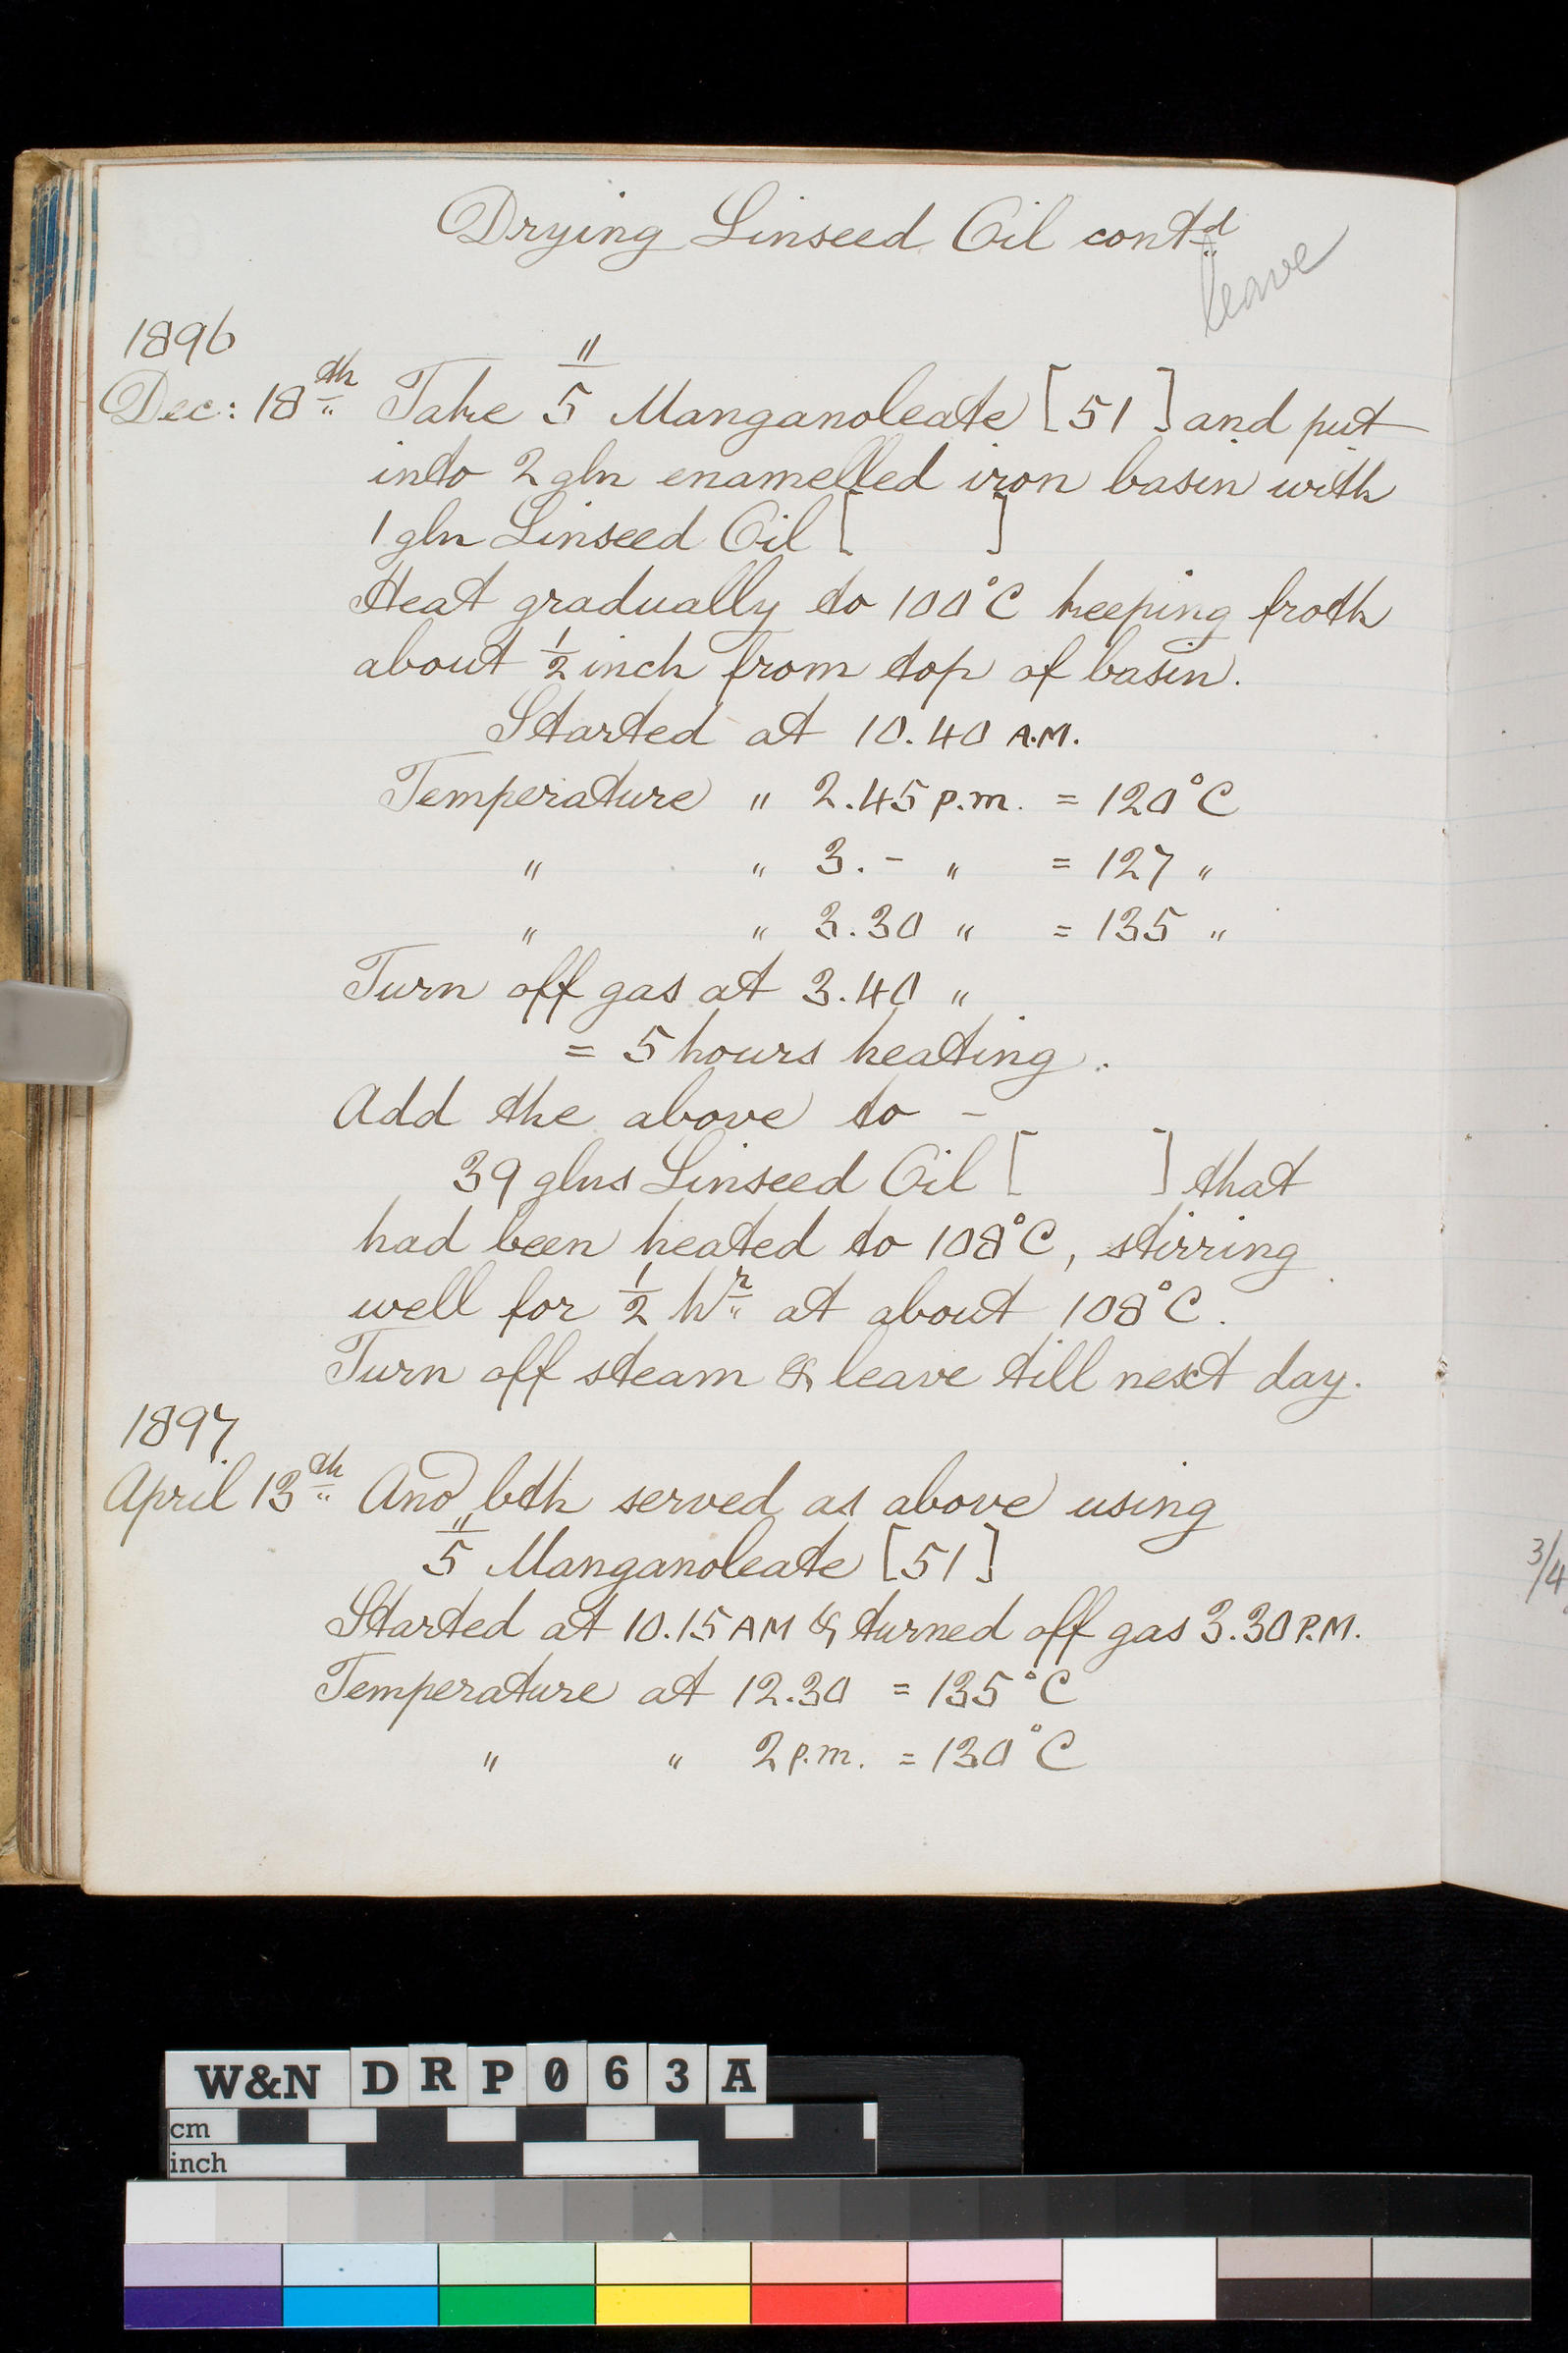 Drying Linseed Oil contd
leave
1896
Dec: 18th Take 5" Manganoleate [51] and put
into 2 gln enamelled iron basin with
1 gln Linseed Oil [ ]
Heat gradually to 100°C keeping froth
about ½ inch from top of basin.
Started at 10.40 A.M.
Temperature " 2.45 p.m. = 120°C
" " 3.- " = 127 "
" " 3.30 " = 135 "
Turn off gas at 3.40 "
= 5 hours heating.
Add the above to -
39 glns Linseed Oil [ ] that
had been heated to 108°C, stirring
well for ½ hr at about 108°C.
Turn off steam & leave till next day.
1897
April 13th Ano bth served as above using
5" Manganoleate [51]
Started at 10.15 AM & turned off gas 3.30 P.M.
Temperature at 12.30 = 135°C
" " 2 p.m. = 130°C
3/4
W&N DRP063A
cm
inch